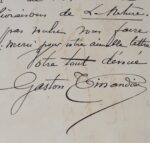 livraisons de La Nature
pas vouloir vous faire
merci pour votre aimable lettre
Votre tout dévoué
Gaston Tissandier